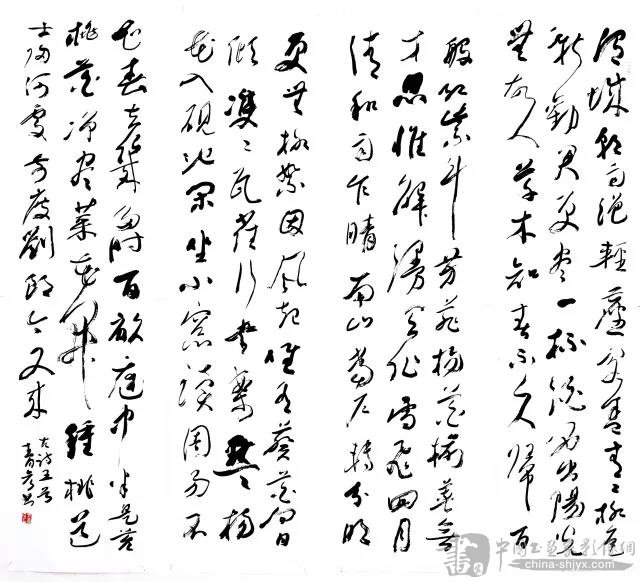 渭城朝雨浥輕塵客舍青青柳色
新勸君更盡一杯酒西出陽關
無故人草木知春不久歸百
般紅紫鬥芳菲楊花榆莢無
才思惟解漫天作雪飛四月
清和雨乍晴南山當户轉分明
更無柳絮因風起惟有葵花向日
傾雙々瓦雀行書案點々楊
花入硯池閑坐小窗讀周易不
知春去幾多時百畝庭中半是苔
桃花净盡菜花開種桃道
士歸何處前度劉郎今又來
古詩五首
書
中国书画家影像网
china-shjyx.com